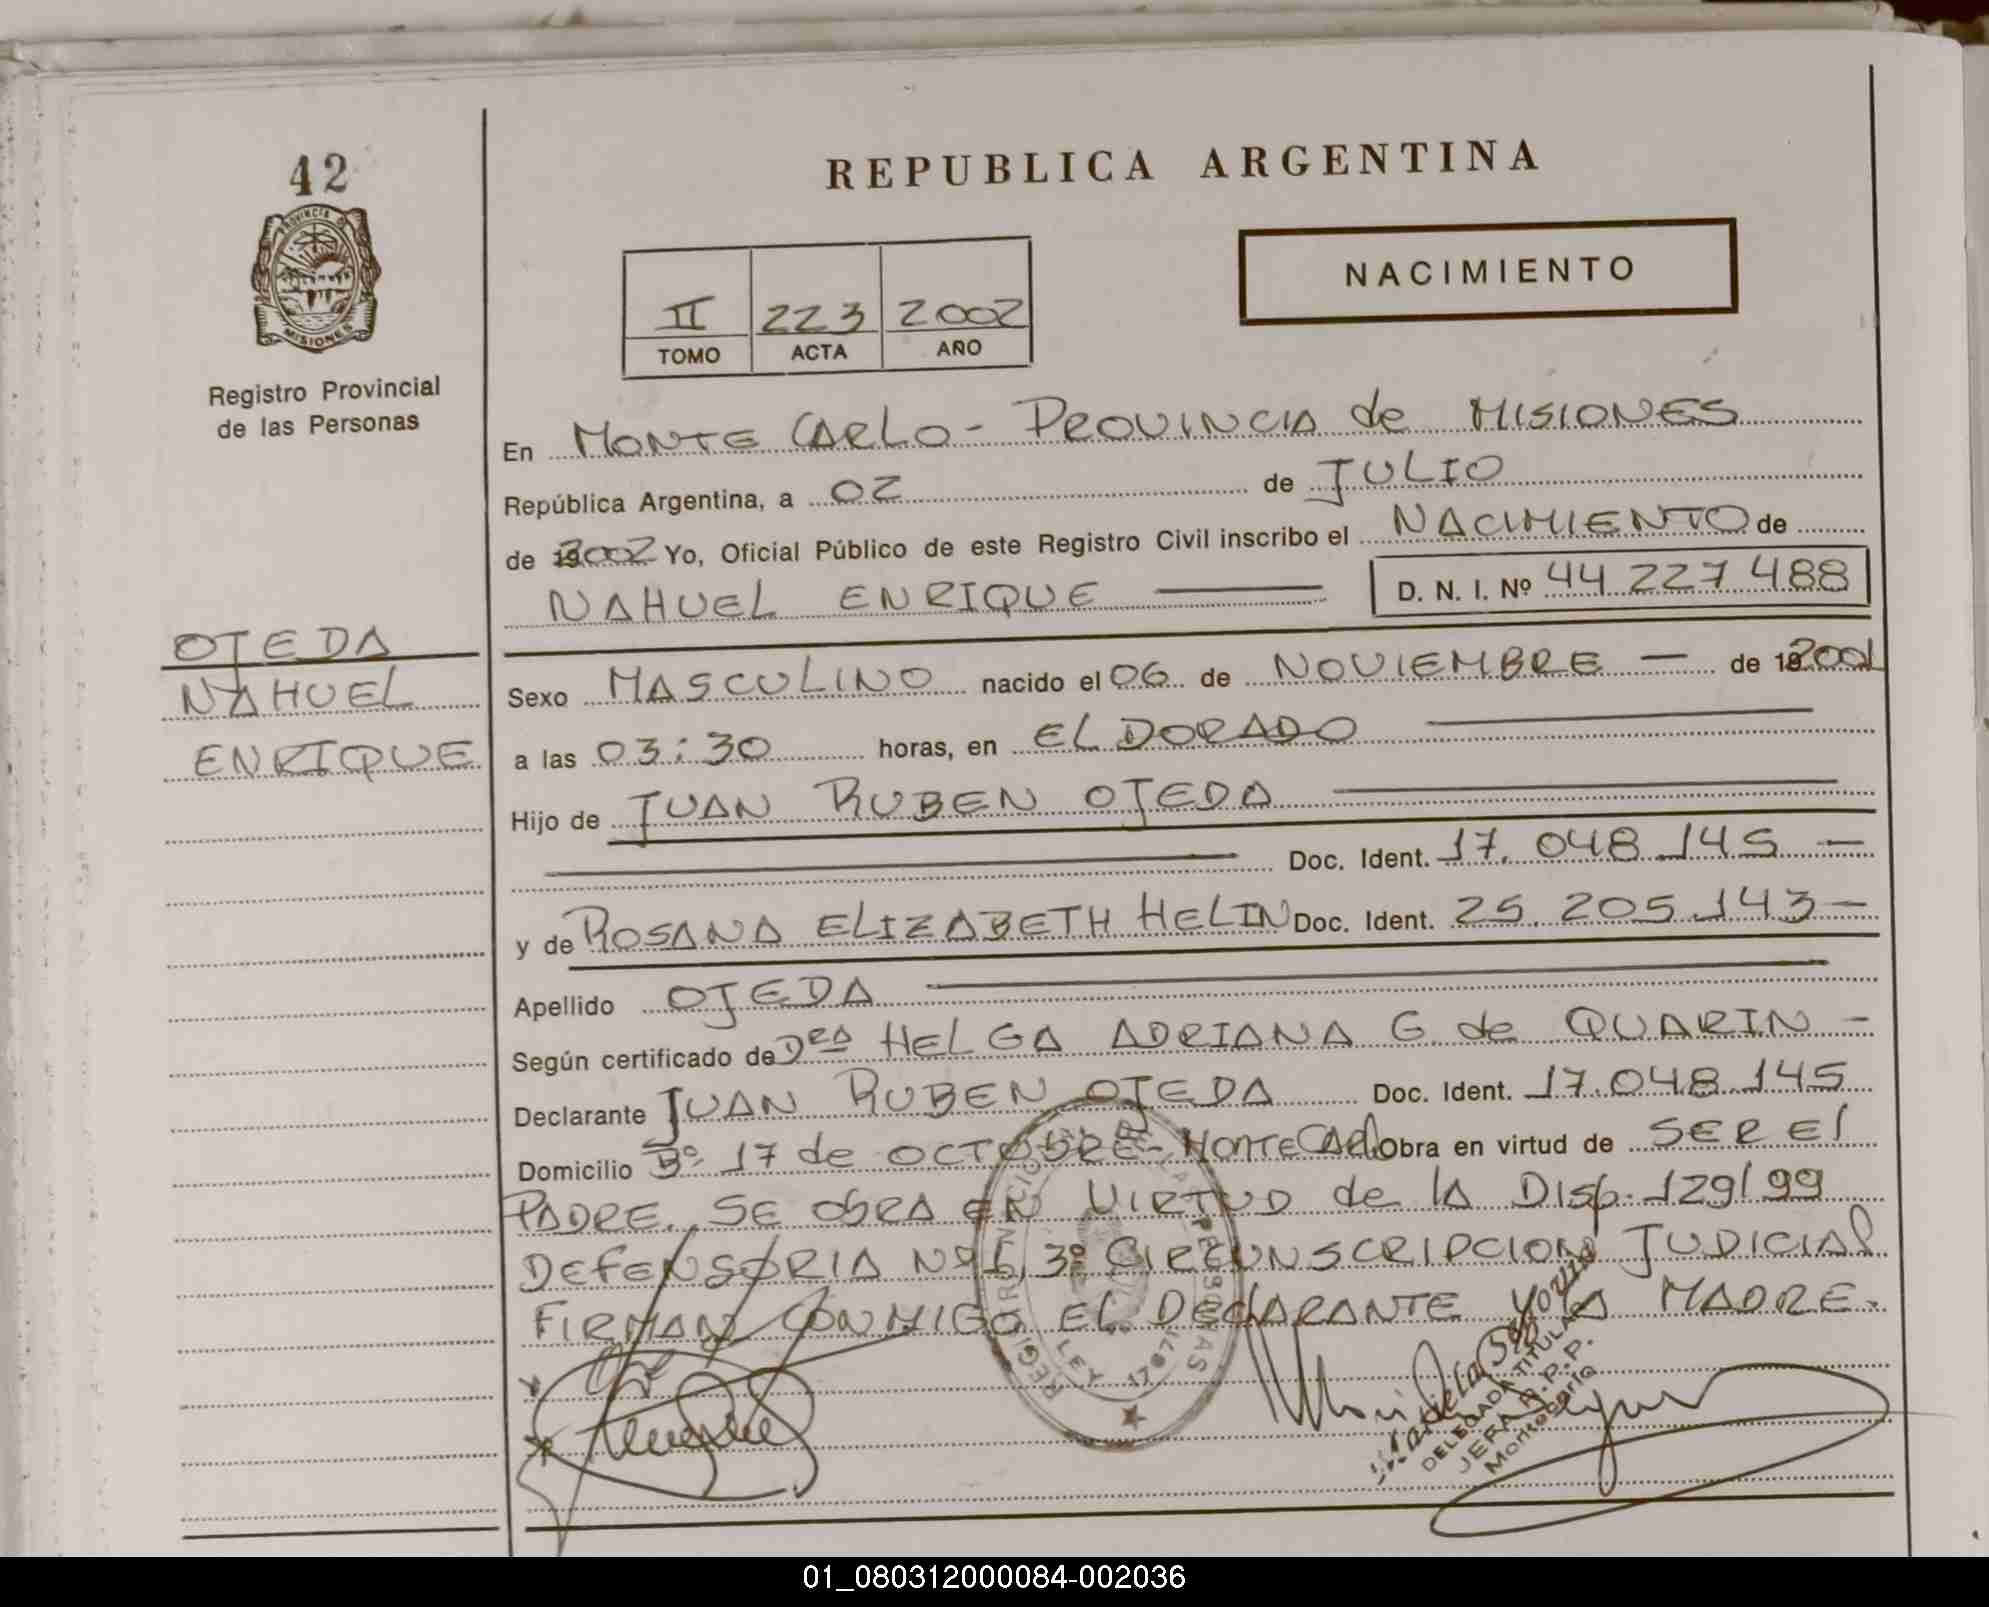 42
PROVINCIA D
MISIONES
Registro Provincial
de las Personas
OJEDA
NAHUEL
ENRIQUE
REPUBLICA ARGENTINA
NACIMIENTO
II 223 2002
TOMO ACTA AÑO
En MONTE CARLO - PROVINCIA de MISIONES
República Argentina, a 02 de JULIO
de 2002 Yo, Oficial Público de este Registro Civil inscribo el NACIMIENTO de
NAHUEL ENRIQUE D. N. I. Nº 44 227 488
Sexo MASCULINO nacido el 06 de NOVIEMBRE — de 2001
a las 03:30 horas, en EL DORADO
Hijo de JUAN RUBEN OJEDA
Doc. Ident. 17.048.145 —
y de ROSANA ELIZABETH HELIN Doc. Ident. 25.205.143 —
Apellido OJEDA
Según certificado de Dra HELGA ADRIANA G. de QUARIN —
Declarante JUAN RUBEN OJEDA Doc. Ident. 17.048.145
Domicilio Bº 17 de OCTUBRE - MONTE CARLO Obra en virtud de SER El
PADRE. SE ObRA EN VIRTUD de lA Disp. 129/99
DEFENSORIA Nº 1, 3º CIRCUNSCRIPCION JUDICIAL
FIRMAN CONMIGO EL DEClARANTE Y lA MADRE.
REGISTRO PROVINCIAL DE LAS PERSONAS
LEY 17671
DELEGADA TITULAR
JEFA R.P.P.
Montecarlo
01_080312000084-002036